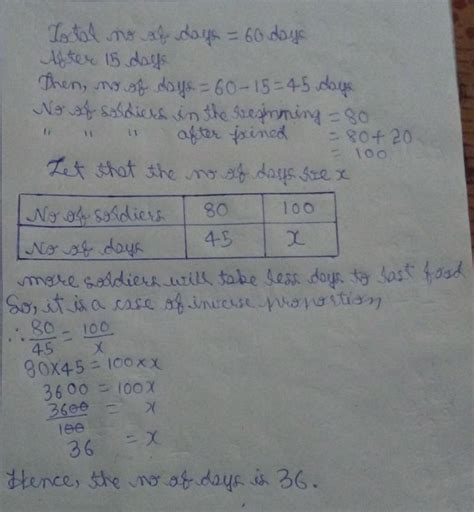 Total no of days = 60 days
After 15 days
Then, no of days = 60 - 15 = 45 days
No of soldiers in the beginning = 80
" " " after joined = 80 + 20
= 100
Let that the no of days are x
No of soldiers 80 100
No of days 45 x
more soldiers will take less days to last food
So, it is a case of inverse proportion,
∴ 80/45 = 100/x
80 x 45 = 100 x x
3600 = 100x
3600/100 = x
36 = x
Hence, the no of days is 36.